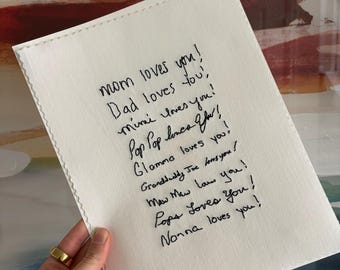 mom loves you!
Dad loves you!
mimi loves you!
Pop Pop loves You!
Glamma loves you!
Granddaddy Joe loves you!
Maw Maw Loves you!
Pops Loves You!
Nonna loves you!